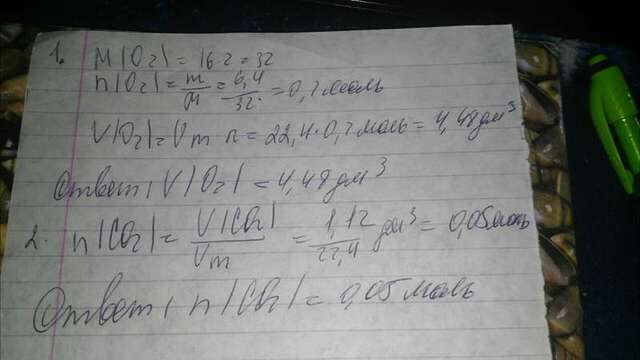 1. M(O₂) = 16·2 = 32
n(O₂) = m/M = 6,4/32 = 0,2 моль
V(O₂) = Vm n = 22,4·0,2 моль = 4,48 дм³
Ответ: V(O₂) = 4,48 дм³
2. n(CO₂) = V(CO₂)/Vm = 1,12/22,4 дм³ = 0,05 моль
Ответ: n(CO₂) = 0,05 моль